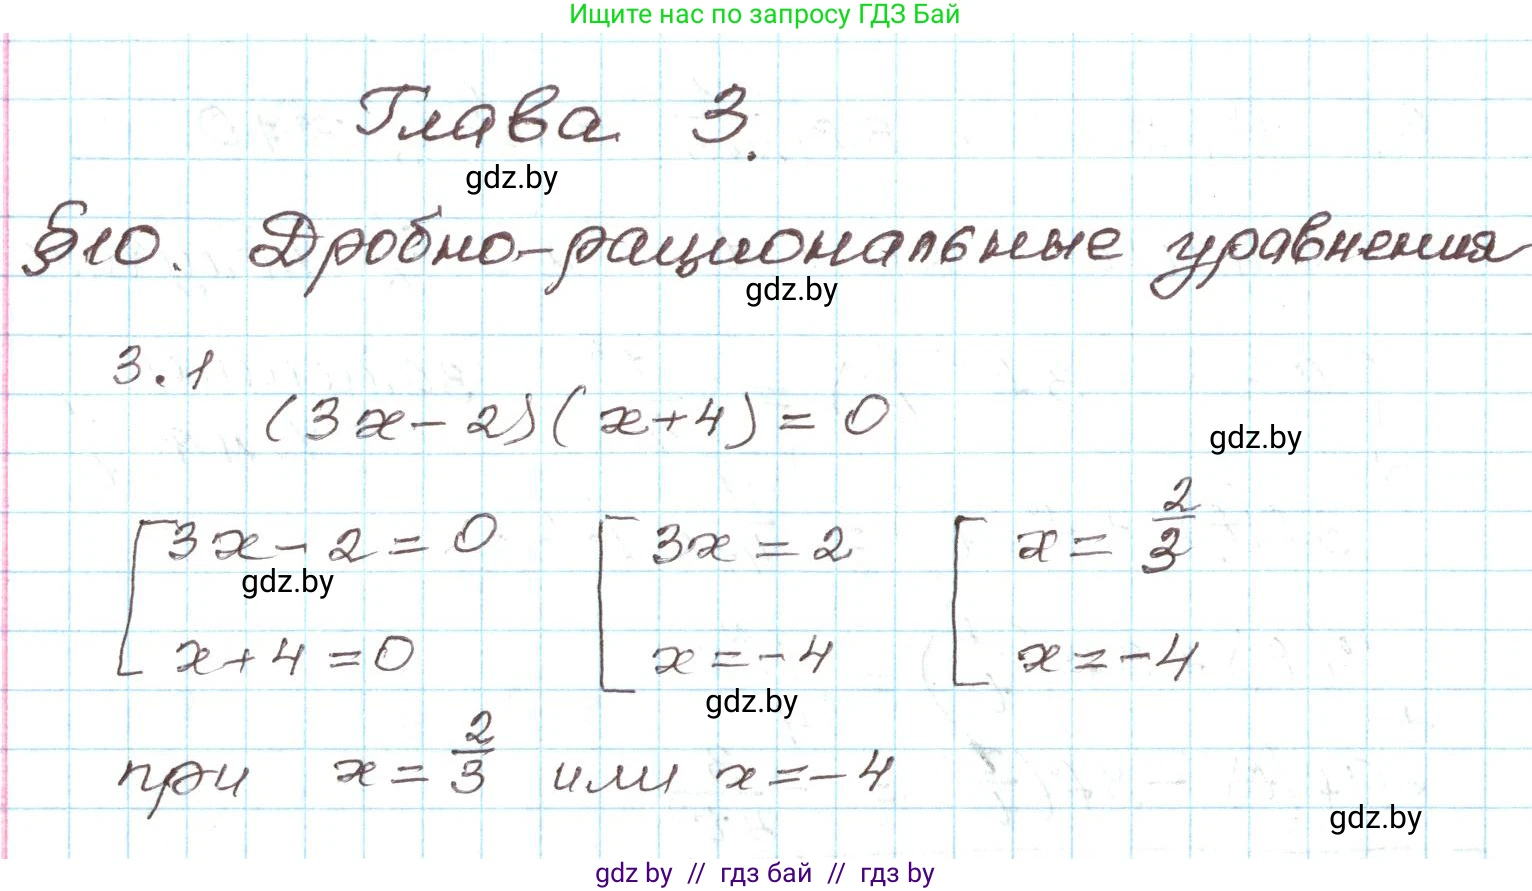 Ищите нас по запросу ГДЗ Бай
Глава 3.
gdz.by
§10. Дробно-рациональные уравнения
gdz.by
3.1
(3x-2)(x+4)=0
gdz.by
[3x-2=0 [3x=2 [x=2/3
gdz.by
x+4=0 x=-4 x=-4
gdz.by
при x=2/3 или x=-4
gdz.by
gdz by // гдз бай // гдз by